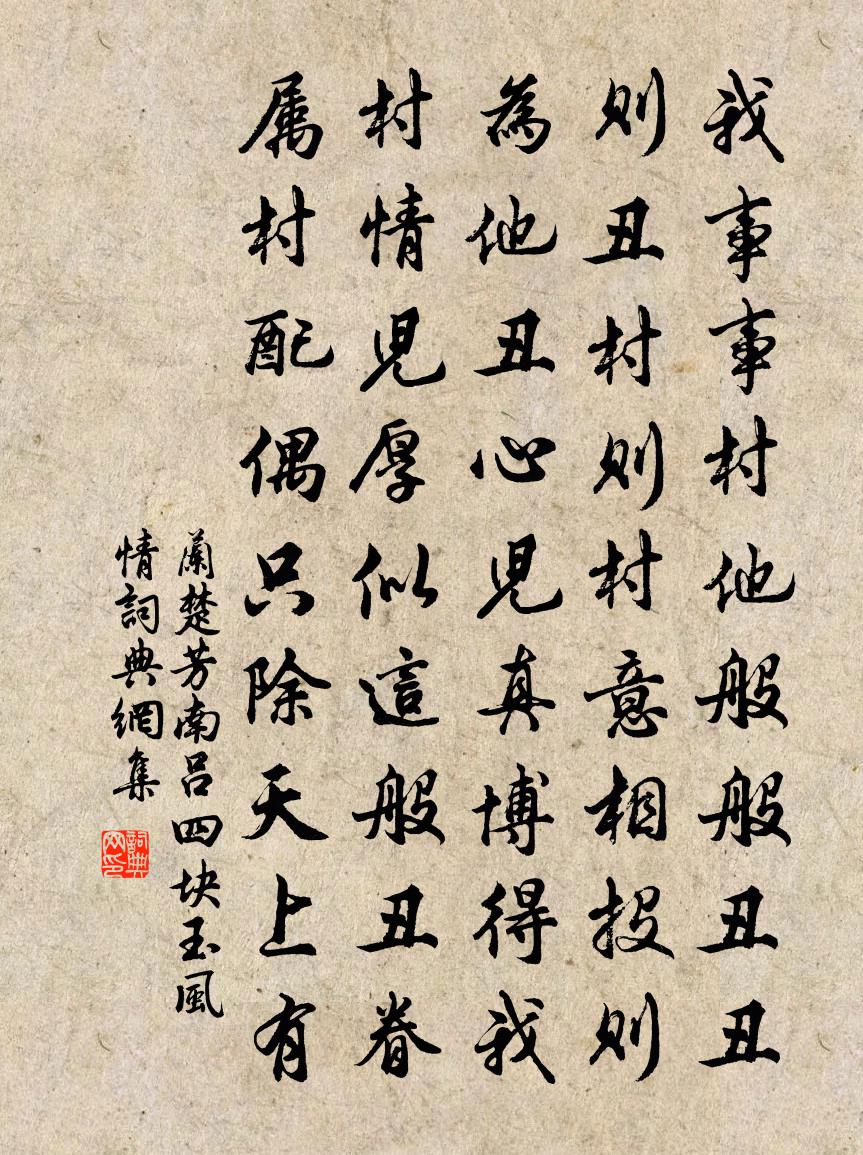 我事事村他般般丑丑
則丑村則村意相投則
為他丑心兒真博得我
村情兒厚似這般丑眷
属村配偶只除天上有
蘭楚芳南呂四块玉風
情詞典網集
詞典网印